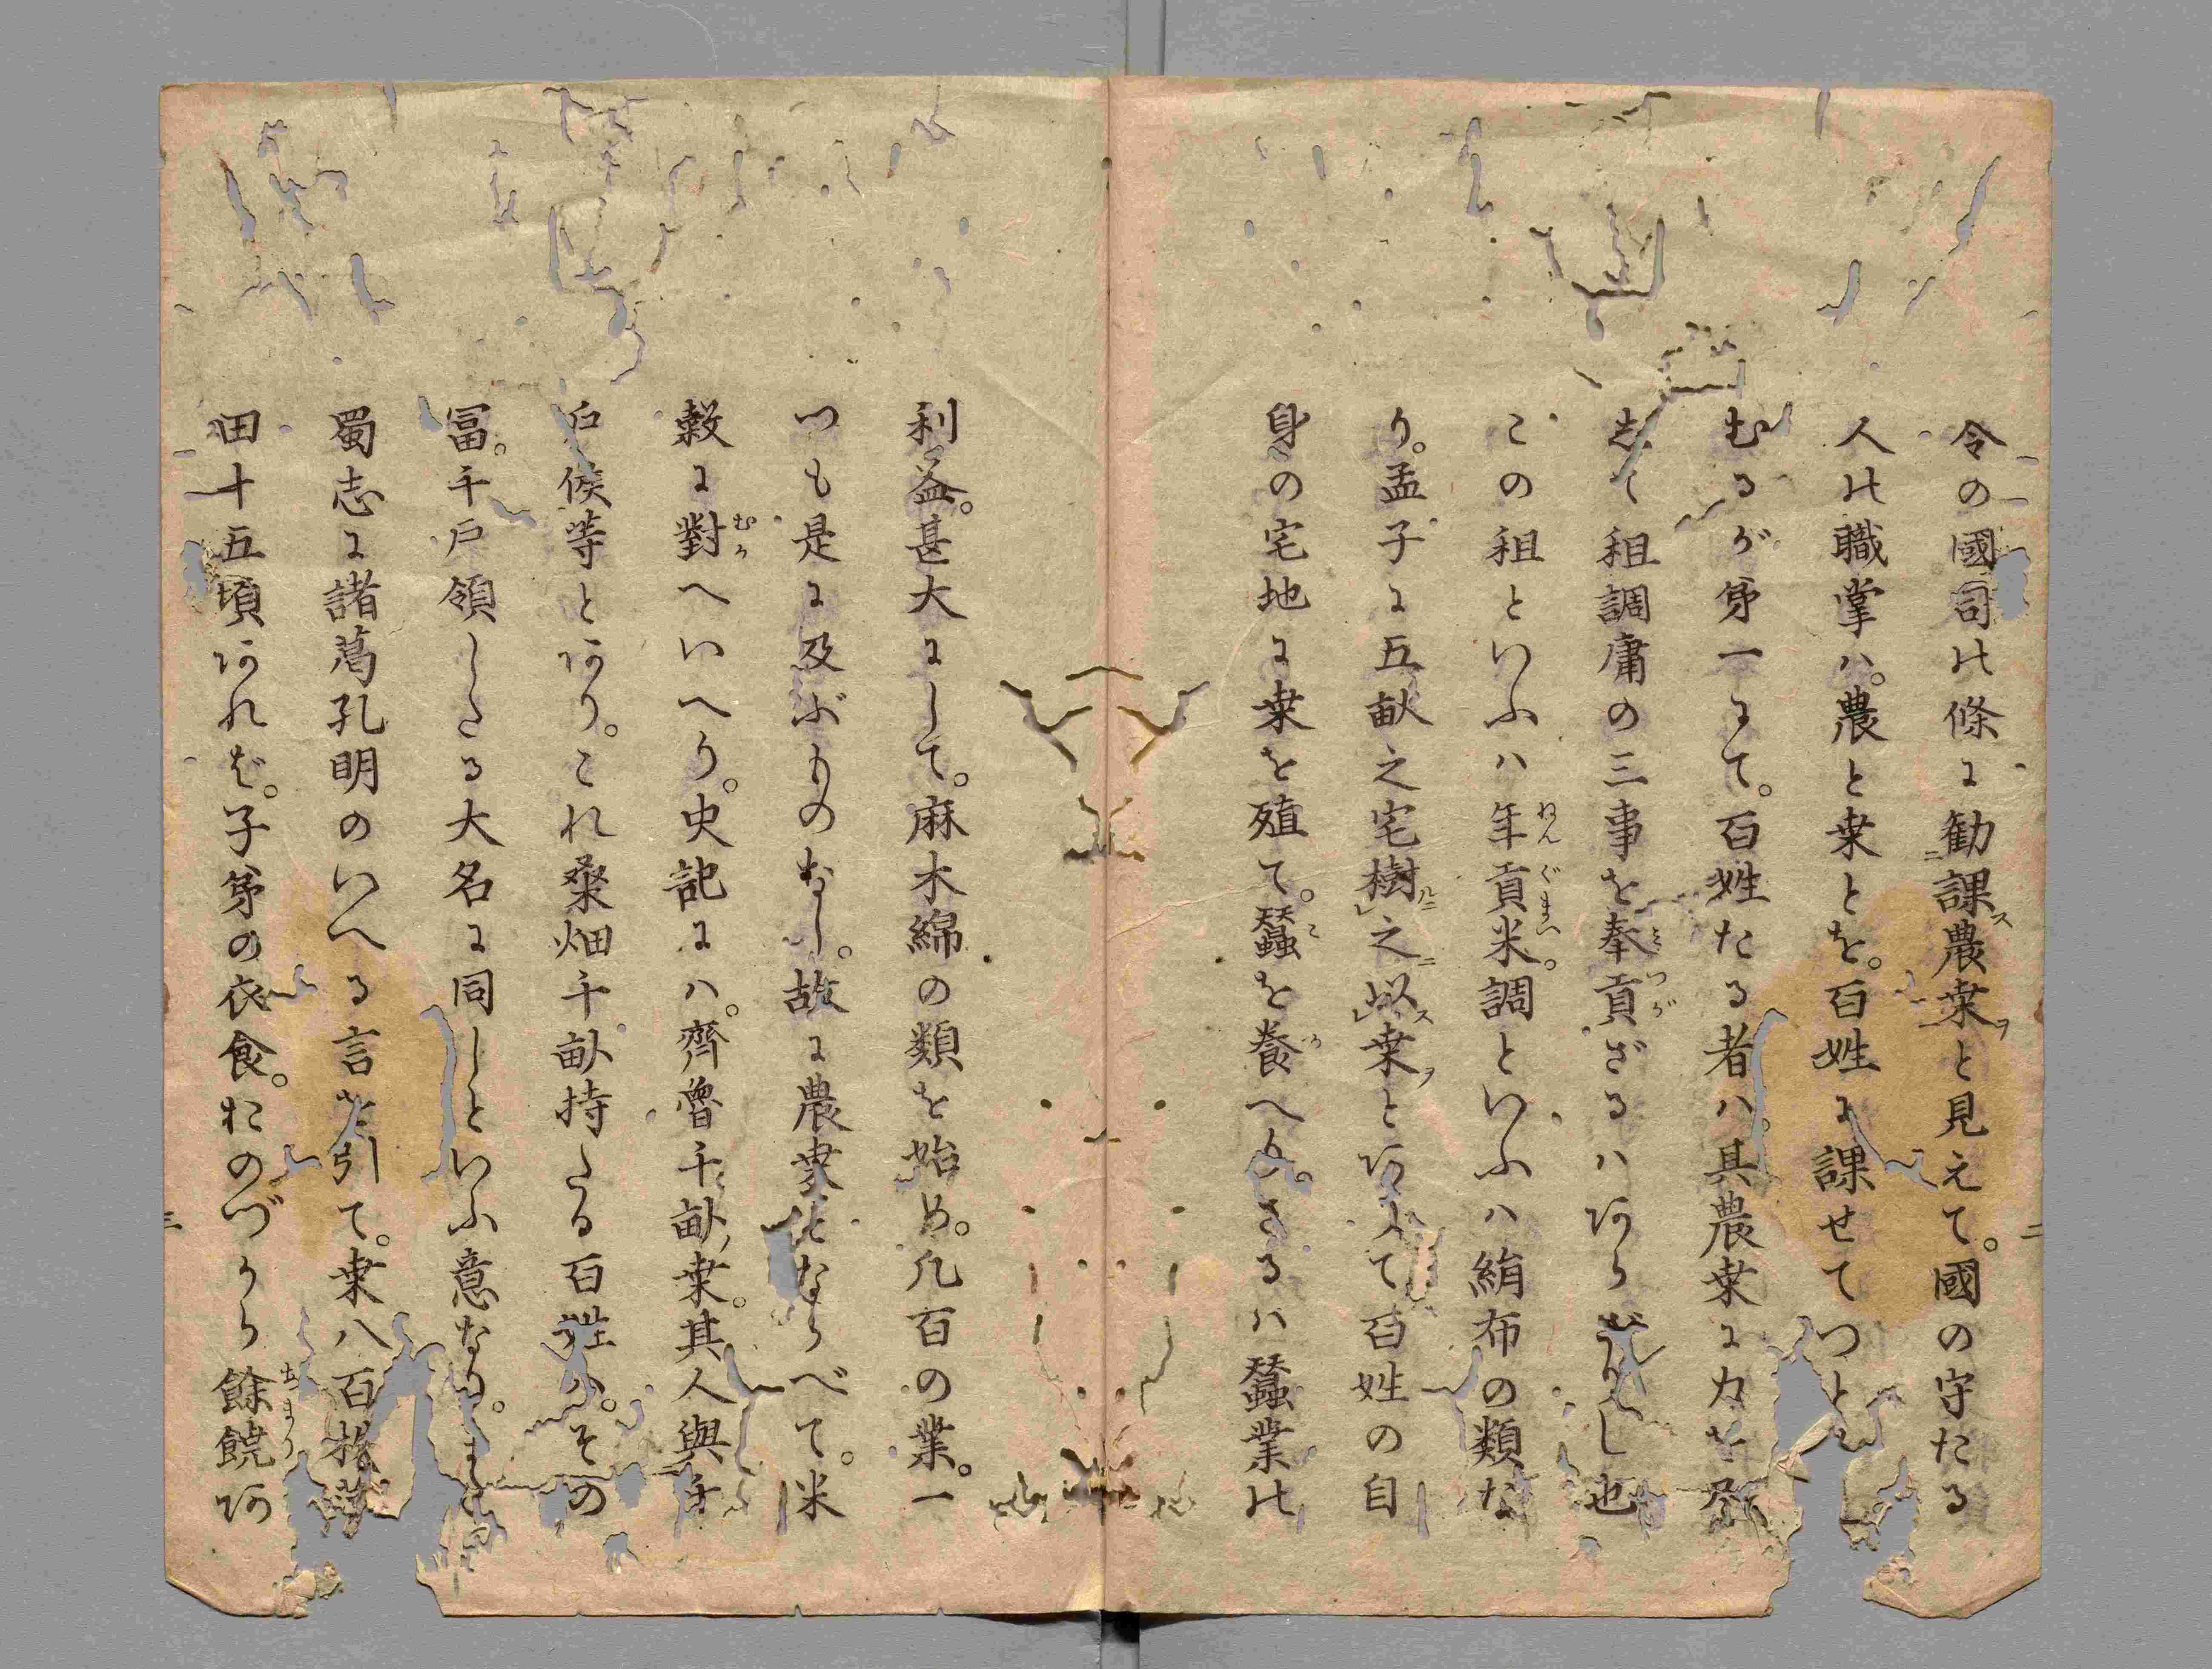 令の國司の條に勧課農桒と見えて。國の守たる
人の職掌ハ。農と桒とを。百姓に課せてつと
むるが第一にて。百姓たる者ハ。其農桒に力を尽
して租調庸の三事を奉貢ざるハあらざりし也
この租といふハ年貢米。調といふハ絹布の類な
り。孟子に五畝之宅樹之以桒とありて百姓の自
身の宅地に桒を殖て。蠶を養へり。さるハ蠶業の
二
利益。甚大にして。麻木綿の類を始め。凡百の業。一
つも是に及ぶものなし。故に農桒とならべて。米
穀に對へいへり。史記にハ。齊魯千畝桒。其人與千
戸侯等とあり。これ桑畑千畝持たる百姓ハ。その
冨。千戸領したる大名に同しといふ意なり。また
蜀志に諸葛孔明のいへる言を引て。桒八百株薄
田十五頃あれば。子弟の衣食。おのづから餘饒あ
三